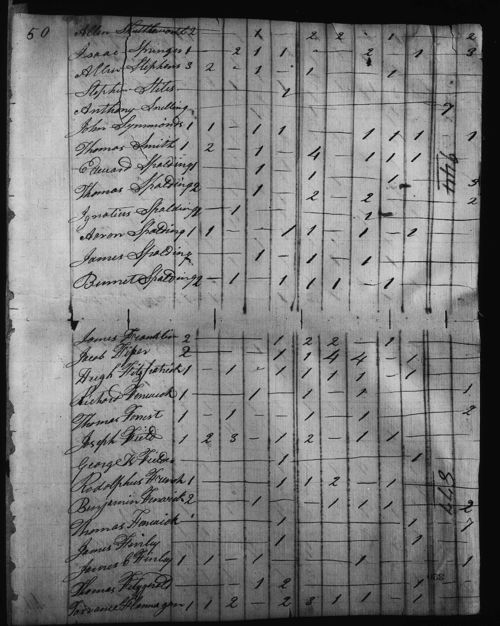 50
Allen Shuttleworth 2 1 2 2 1 2
Isaac Springer 1 - 2 1 1 - 2 - 1 3
Allen Stephens 3 2 - 1 - 1 1
Stephen Stiles 1
Anthony Snelling 7
John Symmonds 1 1 - 1 1 1 1 1 1
Thomas Smith 1 2 - 1 - 4 - 1 1 1
Edward Spalding 1 1 - 1 1
Thomas Spalding 2 1 - 3
Ignatius Spalding - 1 2 - 2 2
Aaron Spalding 1 1 - - - 1 1 - 1 - 1
James Spalding 1 - 1 - 1
Bennet Spalding 2 - 1 - 1 1 1 1 - 1
944
James Franklin 2 1 2 2 - 1
Jacob Fiper 2 1 1 4 4 - 1
Hugh Fitzpatrick 1 - 1 - 1 1 1 1 - 1
Richard Fenwick 1 1 - 1 1
Thomas Forrest 1 - 1 1 - 1 2
Joseph Field 1 2 3 - 1 2 - 1 1
George Fields 1 1
Rodolphus French 1 1 1 2 1
Benjamin Fenwick 2 1 - 1 1 1 2
Thomas Fenwick 1 7
James Finly 1 1
James C Finly 1 - 1 1 1 1
Thomas Fitzgerald 1 2
Flannagan 1 1 2 - 2 3 1 1 - 1 1